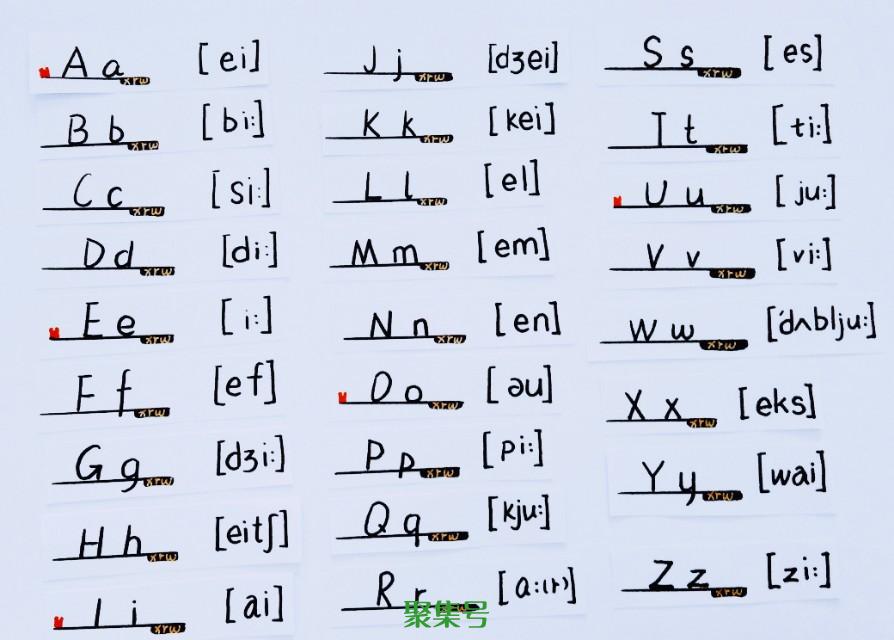 A a xrw [ei]
B b xrw [bi:]
C c xrw [si:]
D d xrw [di:]
E e xrw [i:]
F f xrw [ef]
G g xrw [dʒi:]
H h xrw [eitʃ]
I i xrw [ai]
J j xrw [dʒei]
K k xrw [kei]
L l xrw [el]
M m xrw [em]
N n xrw [en]
O o xrw [əu]
P p xrw [pi:]
Q q xrw [kju:]
R r xrw [a:(r)]
聚集号
S s xrw [es]
T t xrw [ti:]
U u xrw [ju:]
V v xrw [vi:]
W w xrw ['dʌblju:]
X x xrw [eks]
Y y xrw [wai]
Z z xrw [zi:]